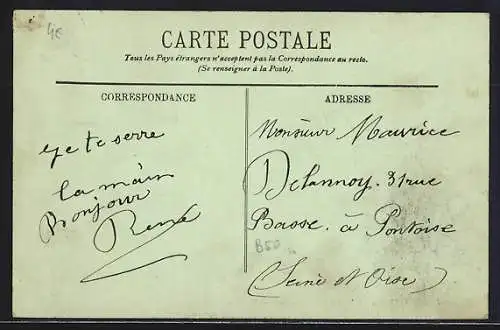 4€
CARTE POSTALE
Tous les Pays étrangers n'acceptent pas la Correspondance au recto.
(Se renseigner à la Poste).
CORRESPONDANCE
Je te serre
la main
Bonjour
René
ADRESSE
Monsieur Maurice
Delannoy. 31 rue
Basse. à Pontoise
(Seine et Oise)
B50